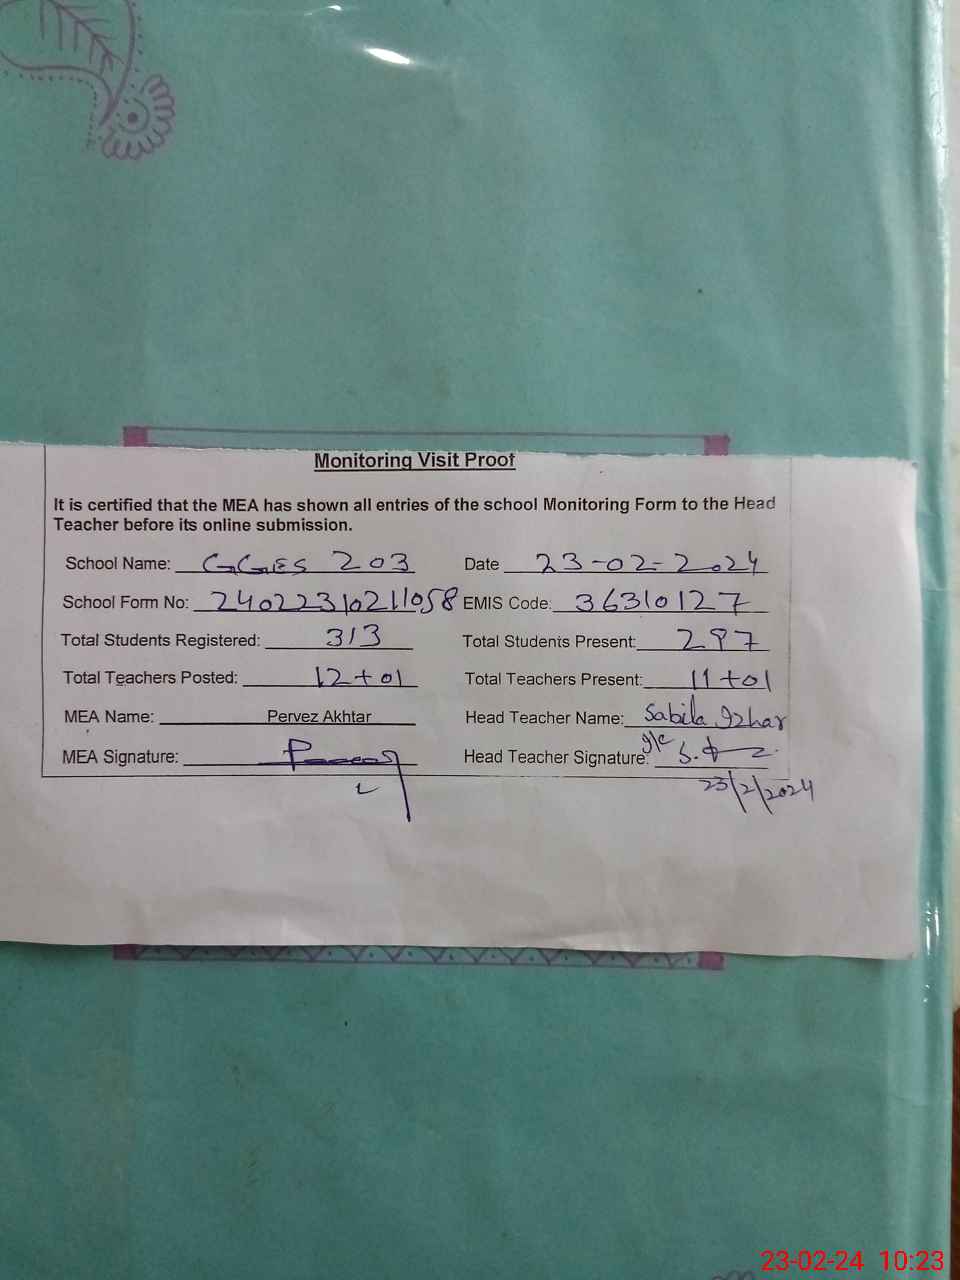 Monitoring Visit Proof
It is certified that the MEA has shown all entries of the school Monitoring Form to the Head
Teacher before its online submission.
School Name: GGES 203 Date 23-02-2024
School Form No: 24022310211058 EMIS Code: 36310127
Total Students Registered: 313 Total Students Present: 297
Total Teachers Posted: 12+01 Total Teachers Present: 11+01
MEA Name: Pervez Akhtar Head Teacher Name: Sabila Izhar
MEA Signature: Head Teacher Signature:
23/2/2024
23-02-24 10:23